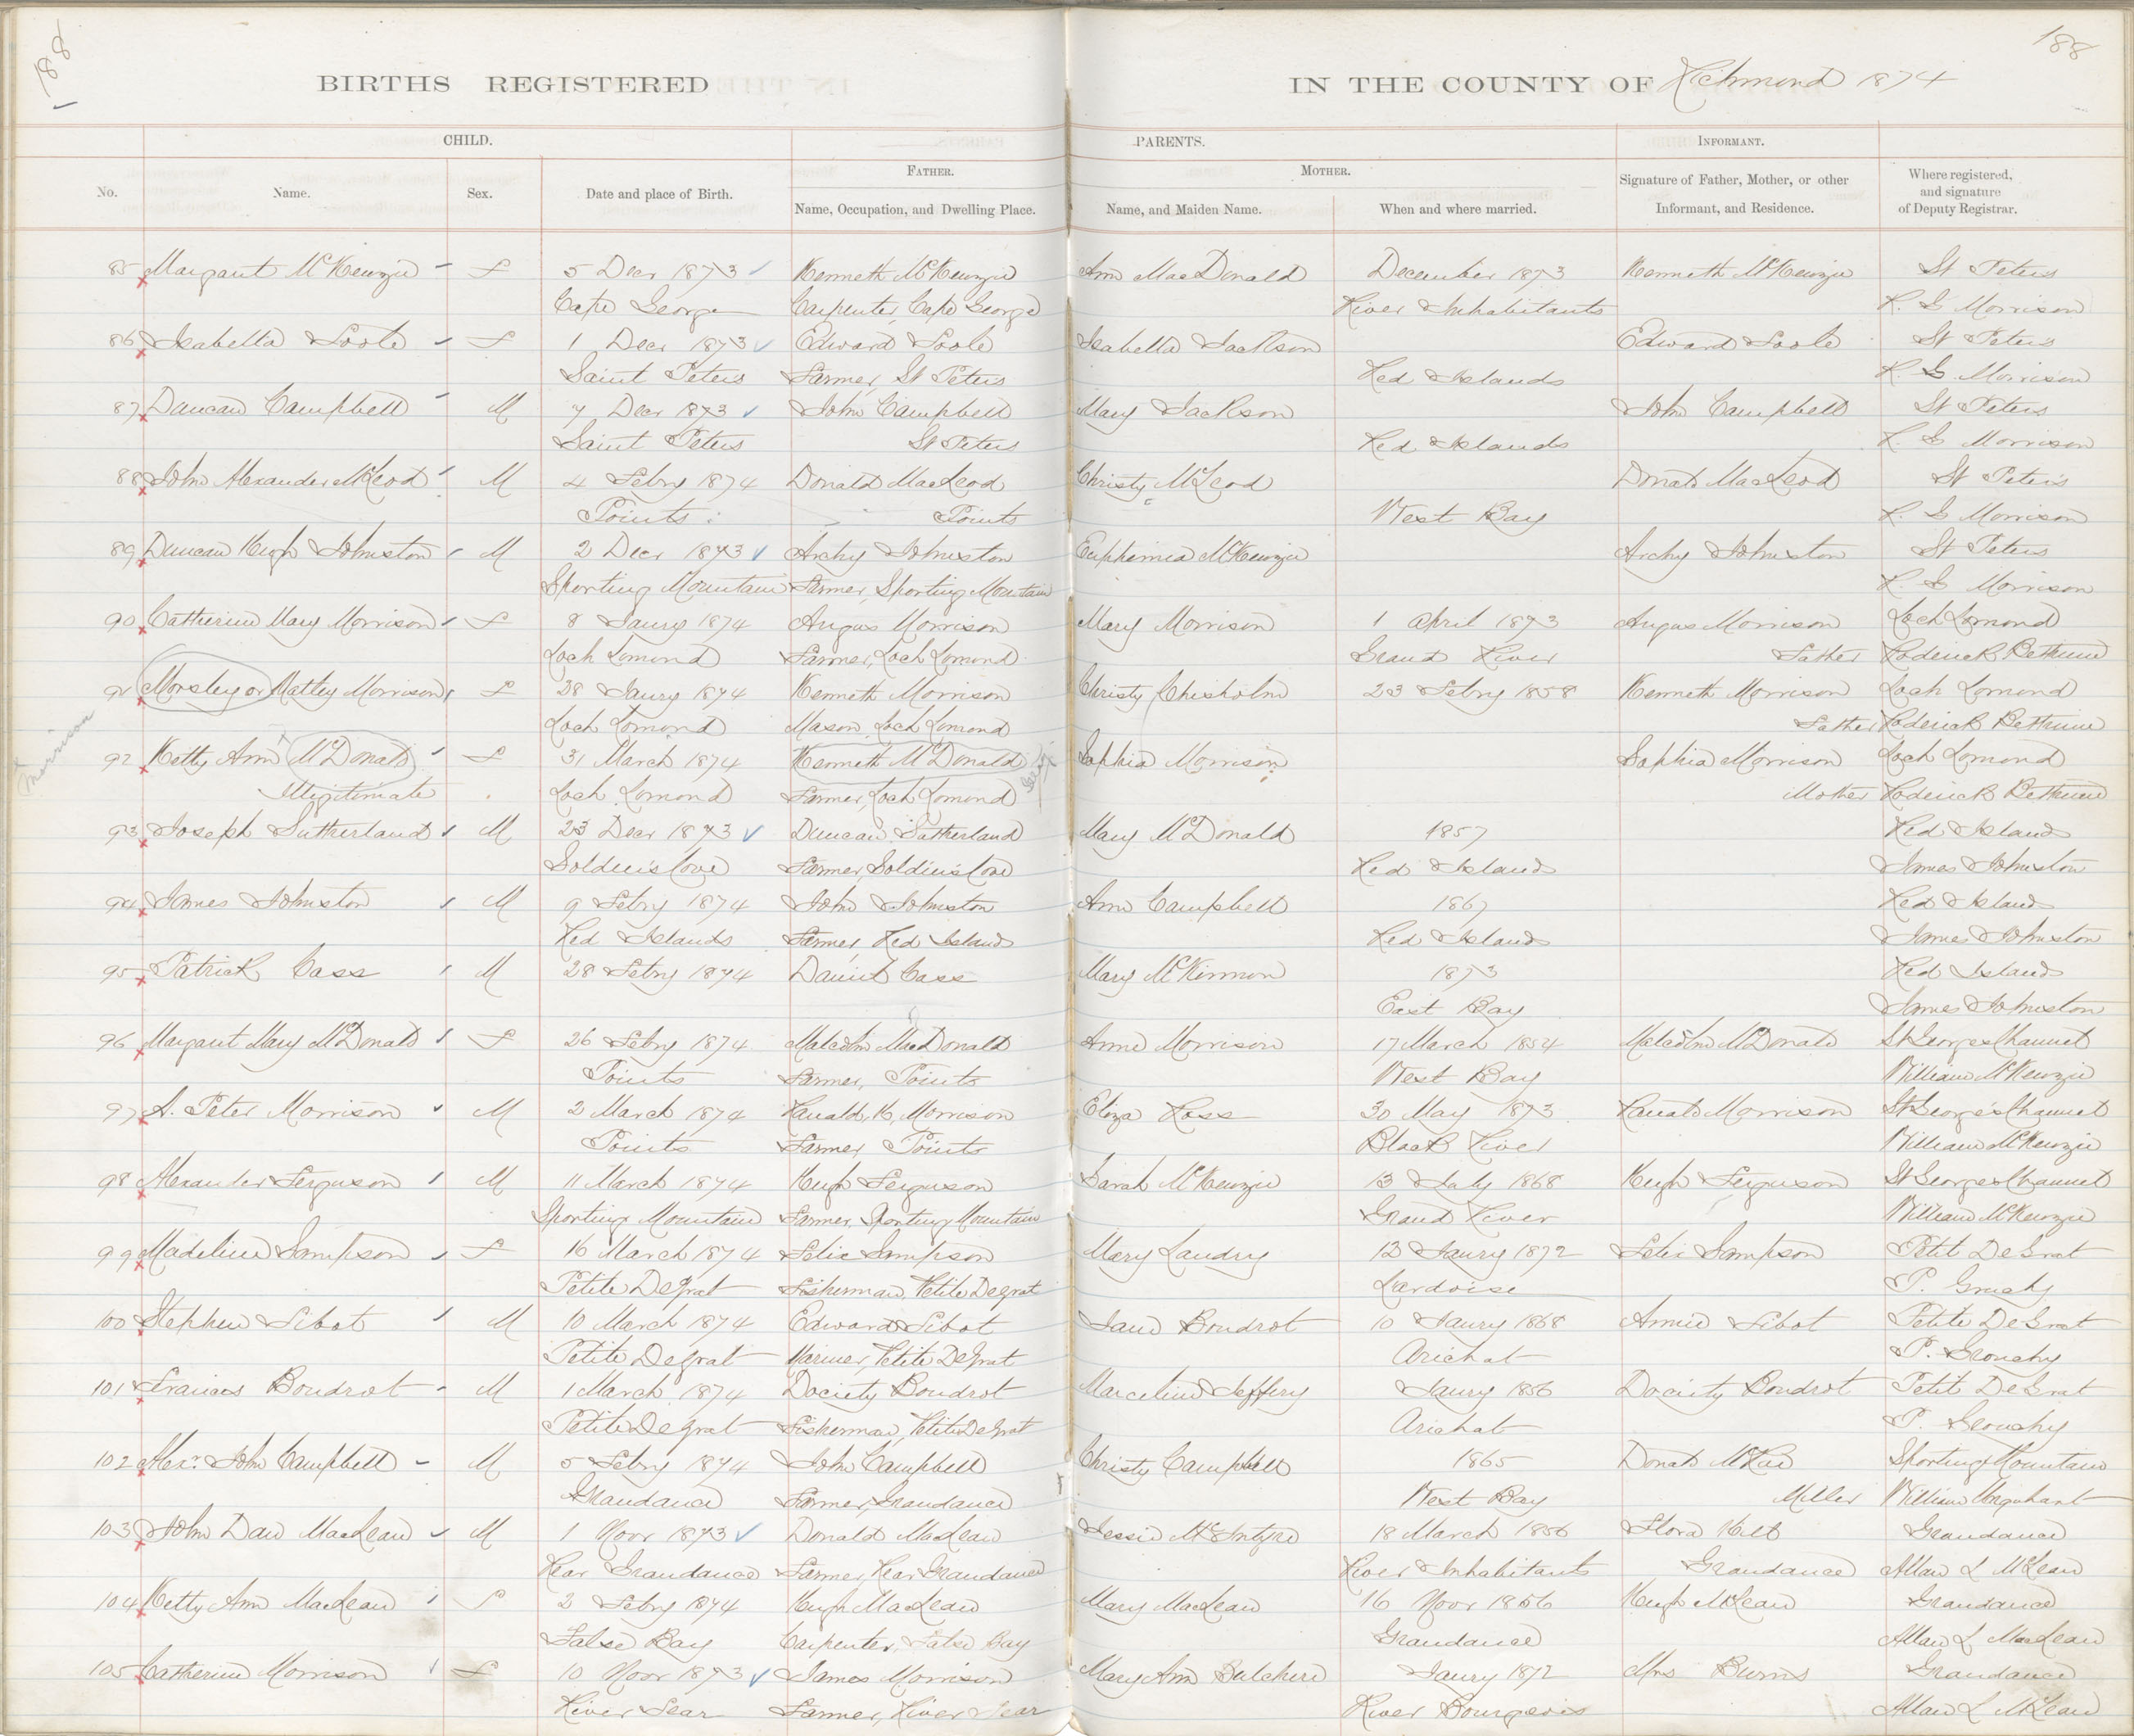 188
188
BIRTHS REGISTERED IN THE COUNTY OF Richmond 1874
CHILD. PARENTS. INFORMANT.
No. Name. Sex. Date and place of Birth. FATHER. Name, Occupation, and Dwelling Place. MOTHER. Name, and Maiden Name. When and where married. Signature of Father, Mother, or other Informant, and Residence. Where registered, and signature of Deputy Registrar.
85 Margaret McKenzie F 5 Decr 1873 Kenneth McKenzie Ann MacDonald December 1873 Kenneth McKenzie St Peters
Cape George Carpenter, Cape George River Inhabitants R. G. Morrison
86 Isabella Foote F 1 Decr 1873 Edward Foote Isabella Jackson Edward Foote St Peters
Saint Peters Farmer, St Peters Red Islands R. G. Morrison
87 Duncan Campbell M 7 Decr 1873 John Campbell Mary Jackson John Campbell St Peters
Saint Peters St Peters Red Islands R. G. Morrison
88 John Alexander McLeod M 4 Febry 1874 Donald MacLeod Christy McLeod Donald MacLeod St Peters
Points Points West Bay R. G. Morrison
89 Duncan Hugh Johnston M 2 Decr 1873 Archy Johnston Euphemia McKenzie Archy Johnston St Peters
Sporting Mountain Farmer, Sporting Mountain R. G. Morrison
90 Catherine Mary Morrison F 8 Janry 1874 Angus Morrison Mary Morrison 1 April 1873 Angus Morrison Loch Lomond
Loch Lomond Farmer, Loch Lomond Grand River Father Roderick Bethune
91 Morsley or Matley Morrison F 28 Janry 1874 Kenneth Morrison Christy Chisholm 23 Febry 1858 Kenneth Morrison Loch Lomond
Loch Lomond Mason, Loch Lomond Father Roderick Bethune
Morrison
92 Ketty Ann McDonald F 31 March 1874 Kenneth McDonald Sophia Morrison Sophia Morrison Loch Lomond
Illegitimate Loch Lomond Farmer, Loch Lomond Mother Roderick Bethune
93 Joseph Sutherland M 23 Decr 1873 Duncan Sutherland Mary McDonald 1857 Red Island
Soldiers Cove Farmer, Soldiers Cove Red Island James Johnston
94 James Johnston M 9 Febry 1874 John Johnston Ann Campbell 1867 Red Island
Red Islands Farmer, Red Island Red Island James Johnston
95 Patrick Cass M 28 Febry 1874 Daniel Cass Mary McKinnon 1873 Red Island
East Bay James Johnston
96 Margaret Mary McDonald F 26 Febry 1874 Malcolm MacDonald Anne Morrison 17 March 1854 Malcolm McDonald St Georges Channel
Points Farmer, Points West Bay William McKenzie
97 A. Peter Morrison M 2 March 1874 Ranald, K, Morrison Eliza Ross 30 May 1873 Ranald Morrison St Georges Channel
Points Farmer Points Black River William McKenzie
98 Alexander Ferguson M 11 March 1874 Hugh Ferguson Sarah McKenzie 13 July 1868 Hugh Ferguson St Georges Channel
Sporting Mountain Farmer, Sporting Mountain Grand River William McKenzie
99 Madeline Sampson F 16 March 1874 Felix Sampson Mary Landry 12 Janry 1872 Felix Sampson Petit DeGrat
Petite DeGrat Fisherman, Petite Degrat Lardoise P. Gruchy
100 Stephen Libot M 10 March 1874 Edward Libot Jane Boudrot 10 Janry 1868 Annie Libot Petite DeGrat
Petite Degrat Mariner, Petite DeGrat Arichat P. Grouchy
101 Frances Boudrot M 1 March 1874 Dociety Boudrot Marceline Jeffery Janry 1856 Dociety Boudrot Petit DeGrat
Petite Degrat Fisherman, Petite DeGrat Arichat P. Grouchy
102 Alexr. John Campbell M 5 Febry 1874 John Campbell Christy Campbell 1865 Donald McRae Sporting Mountain
Grandance Farmer, Grandance West Bay Miller William Urquhart
103 John Dan MacLean M 1 Novr 1873 Donald MacLean Jessie McIntyre 18 March 1856 Flora Holt Grandance
Rear Grandance Farmer, Rear Grandance River Inhabitants Grandance Allan L McLean
104 Ketty Ann MacLean F 2 Febry 1874 Hugh MacLean Mary MacLean 16 Novr 1856 Hugh McLean Grandance
False Bay Carpenter, False Bay Grandance Allan L MacLean
105 Catherine Morrison F 10 Novr 1873 James Morrison Mary Ann Butcher Janry 1872 Mrs Burns Grandance
River Tear Farmer, River Tear River Bourgeois Allan L McLean